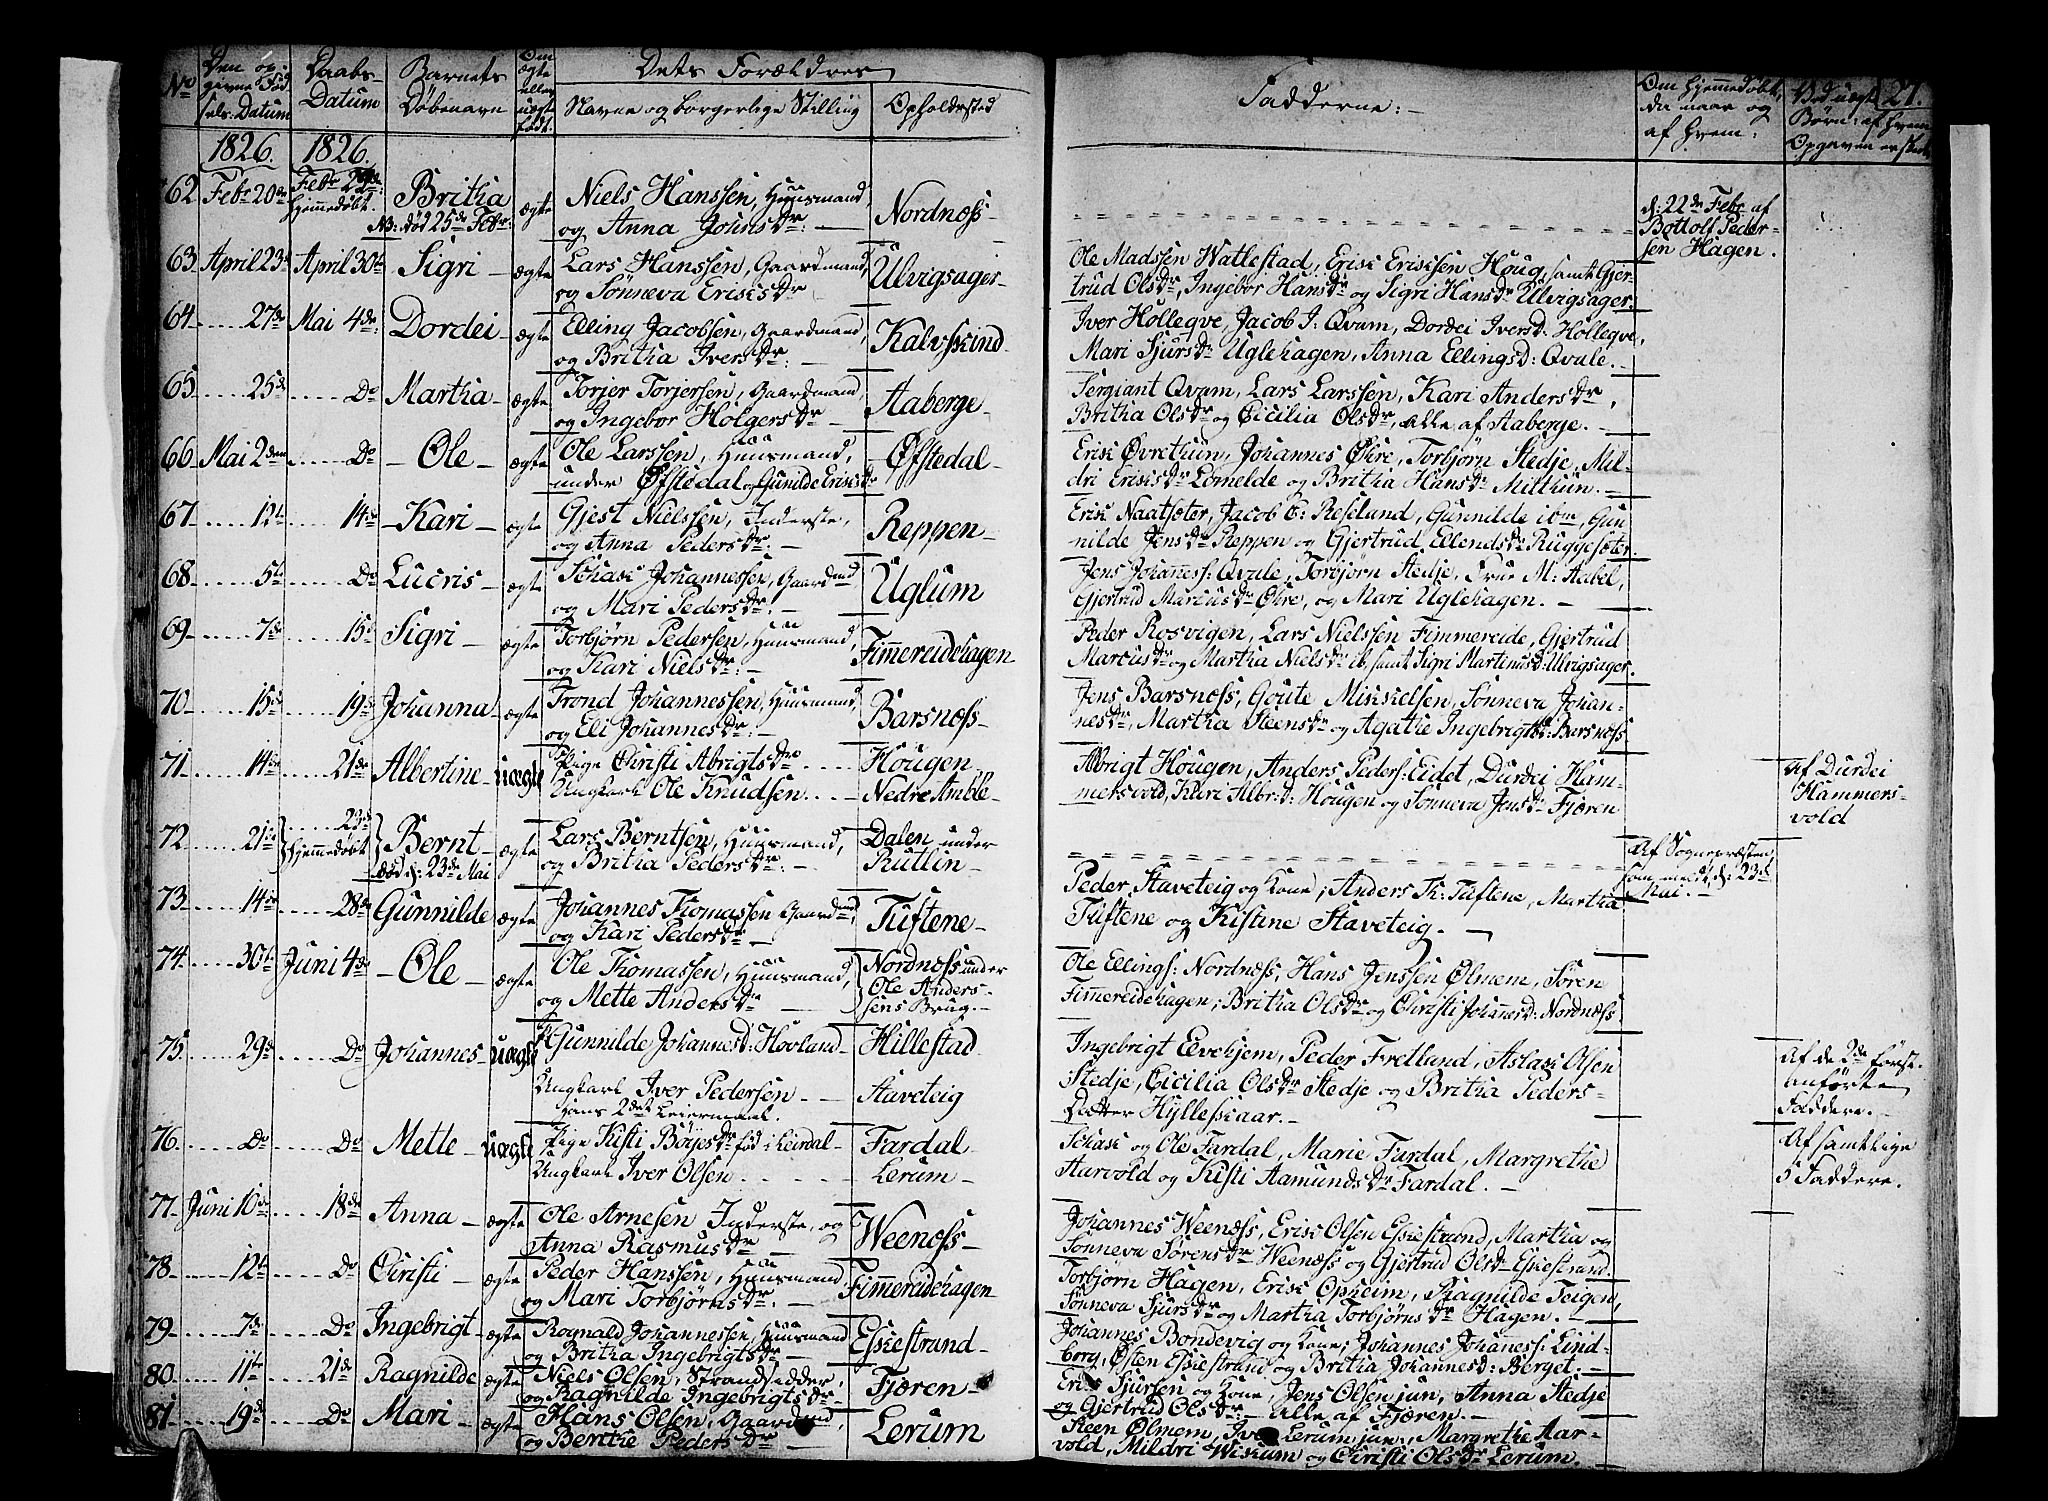 No
Den op-
givne Fød-
sels-Datum
Daabs-
Datum
Barnets
Døbenavn
Om
ægte
eller
uægte
født.
Dets Forældres
Navne og borgerlige Stilling
Opholdssted
Fadderne:
Om hjemmedøbt,
da naar og
af hvem:
Ved uægte
Børn: af hvem
Opgaven er skeet
27.
1826. 1826.
62 Febr 20de Febr 22de hjemmedøbt. Britha NB: død 25de Febr: ægte Niels Hanssen, Huusmand,
og Anna Johnsdr: — Nordnæss —
d: 22de Febr af
Bottolf Peder-
sen Hagen.
63 April 23de April 30te Sigri — ægte Lars Hanssen, Gaardmand,
og Sønneva Ericsdr Ulvigsager —
Ole Madssen Wallestad, Eric Ericksen Houg, samt Gjer-
trud Olsdr, Ingebor Hansdr og Sigri Hansdr Ulvigsager.
64 27de Mai 4de Dordei — ægte Elling Jacobsen, Gaardmand,
og Britha Iversdr: — Kalvskind —
Iver Hollegve, Jacob J: Qvam, Dordei Iversd: Hollegve,
Mari Sjursdr Uglehagen, Anna Ellingsd: Qvale. —
65 25de Do Martha — ægte Torjer Torjersen, Gaardmand,
og Ingebor Holgersdr — Aaberge —
Sergiant Qvam, Lars Larssen, Kari Andersdr,
Britha Olsdr og Cicilia Olsdr, alle af Aaberge. —
66 Mai 2den Do — Ole — ægte Ole Larssen, Huusmand,
under Øfstedal og Gunilde Ericsdr Øfstedal —
Eric Øvrethun, Johannes Øhre, Torbjørn Stedje, Mil-
dri Ericsdr Lomelde og Britha Hansdr Milthun. —
67 12te 14de — Kari — ægte Gjest Nielssen, Inderste,
og Anna Pedersdr: — Reppen —
Eric Naatsæter, Jacob E: Reselund, Gunnilde ibm, Gun-
nilde Jensdr Reppen og Gjertrud Ellendsdr Ruggesæter.
68 5te Do Lucris — ægte Schack Johannessen, Gaardmd
og Mari Pedersdr: — Uglum
Jens Johanness: Qvale, Torbjørn Stedje, Frue M: Aabel,
Gjertrud Marcusdr Øhre, og Mari Uglehagen. —
69 7de 15de Sigri — ægte Torbjørn Pedersen, Huusmand,
og Kari Nielsdr: — Fimmereidehagen
Peder Rosvigen, Lars Nielssen Fimmereide, Gjertrud
Marcusdr og Martha Nielsdr ib, samt Sigri Martinusd: Ulvigsager.
70 15de 19de Johanna — ægte Trond Johannessen, Huusmand,
og Eli Johannesdr: — Barsnæss —
Jens Barsnæss, Goute Mickelsen, Sønneva Johan-
nesdr, Martha Steensdr og Agathe Ingebrigtsd: Barsnæss
71 14de 21de Albertine — uægte Pige Christi Abrigtsdr Hougen —
Ungkarl Ole Knudsen Nedre Amble —
Abrigt Hougen, Anders Peders: Eidet, Durdei Ham-
mersvold, Kari Albr:d: Hougen og Sønneva Jensdr Fjæren
Af Durdei
Hammers-
vold
72 21de 23de hjemmedøbt Bernt — død d: 23de Mai ægte Lars Berntsen, Huusmand,
og Britha Pedersdr: — Dalen under
Rutlin —
Af Sognepræsten,
samme d: 23de
Mai. —
73 14de 28de Gunnilde ægte Johannes Thomassen Gaardmd,
og Kari Pedersdr — Tuftene —
Peder Staveteig og Kone, Anders Th: Tuftene, Martha
Tuftene og Kistine Staveteig. —
74 30te Juni 4de — Ole ægte Ole Thomassen, Huusmand,
og Mette Andersdr — Nordnæss under
Ole Anders-
sens Brug. —
Ole Ellings: Nordnæss, Hans Jenssen Ølmem, Søren
Fimmereidehagen, Britha Olsdr og Christi Johannsd: Nordnæss.
75 29de Do Johannes — uægte P: Gunnilde Johannesd: Hovland — Hillestad —
Ungkarl Iver Pedersen — Staveteig
Hans 2det Leiermaal.
Ingebrigt Elvehjem, Peder Fretlund, Aslac Olsen
Stedje, Cicilia Olsdr Stedje og Britha Peders-
Datter Hylleskaar. —
Af de 2de først-
anførte
Faddere. —
76 Do Do Mette — uægte Pige Kisti Böyesdr fød i Leirdal — Fardal —
Ungkarl Iver Olsen Lerum —
Schack og Ole Fardal, Marie Fardal, Margrethe
Aarvold og Kisti Aamundsdr Fardal. —
Af samtlige
5 Faddere.
77 Juni 10de 18de Anna — ægte Ole Arnesen Inderste, og
Anna Rasmusdr — Weenæss —
Johannes Weenæss, Eric Olsen Eskestrand, Martha og
Sønneva Sørensdr Weenæss og Gjertrud Olsdr Eskestrand.
78 12te Do Christi — ægte Peder Hanssen, Huusmand
og Mari Torbjørnsdr: — Fimmereidehagen
Torbjørn Hagen, Eric Opheim, Ragnilde Teigen,
Sønneva Sjursdr og Martha Torbjørnsdr Hagen. —
79 7de Do Ingebrigt — ægte Rognald Johannessen, Huusmand
og Britha Ingebrigtsdr — Eskestrand —
Johannes Bondevig og Kone, Johannes Johanness: Lind-
borg, Østen Eskestrand og Britha Johannesd: Berget. —
80 11te 21de Ragnilde ægte Niels Olsen, Strandsidder,
og Ragnilde Ingebrigtsdr Fjæren —
Eric Sjursen og Kone, Jens Olsen jun, Anna Stedje
og Gjertrud Olsdr: — alle af Fjæren. —
81 19de Do Mari — ægte Hans Olsen, Gaardmd,
og Berithe Pedersdr — Lerum
Steen Ølmem, Iver Lerum jun, Margrethe Aar-
vold, Mildri Wiskum og Christi Olsdr Lerum.